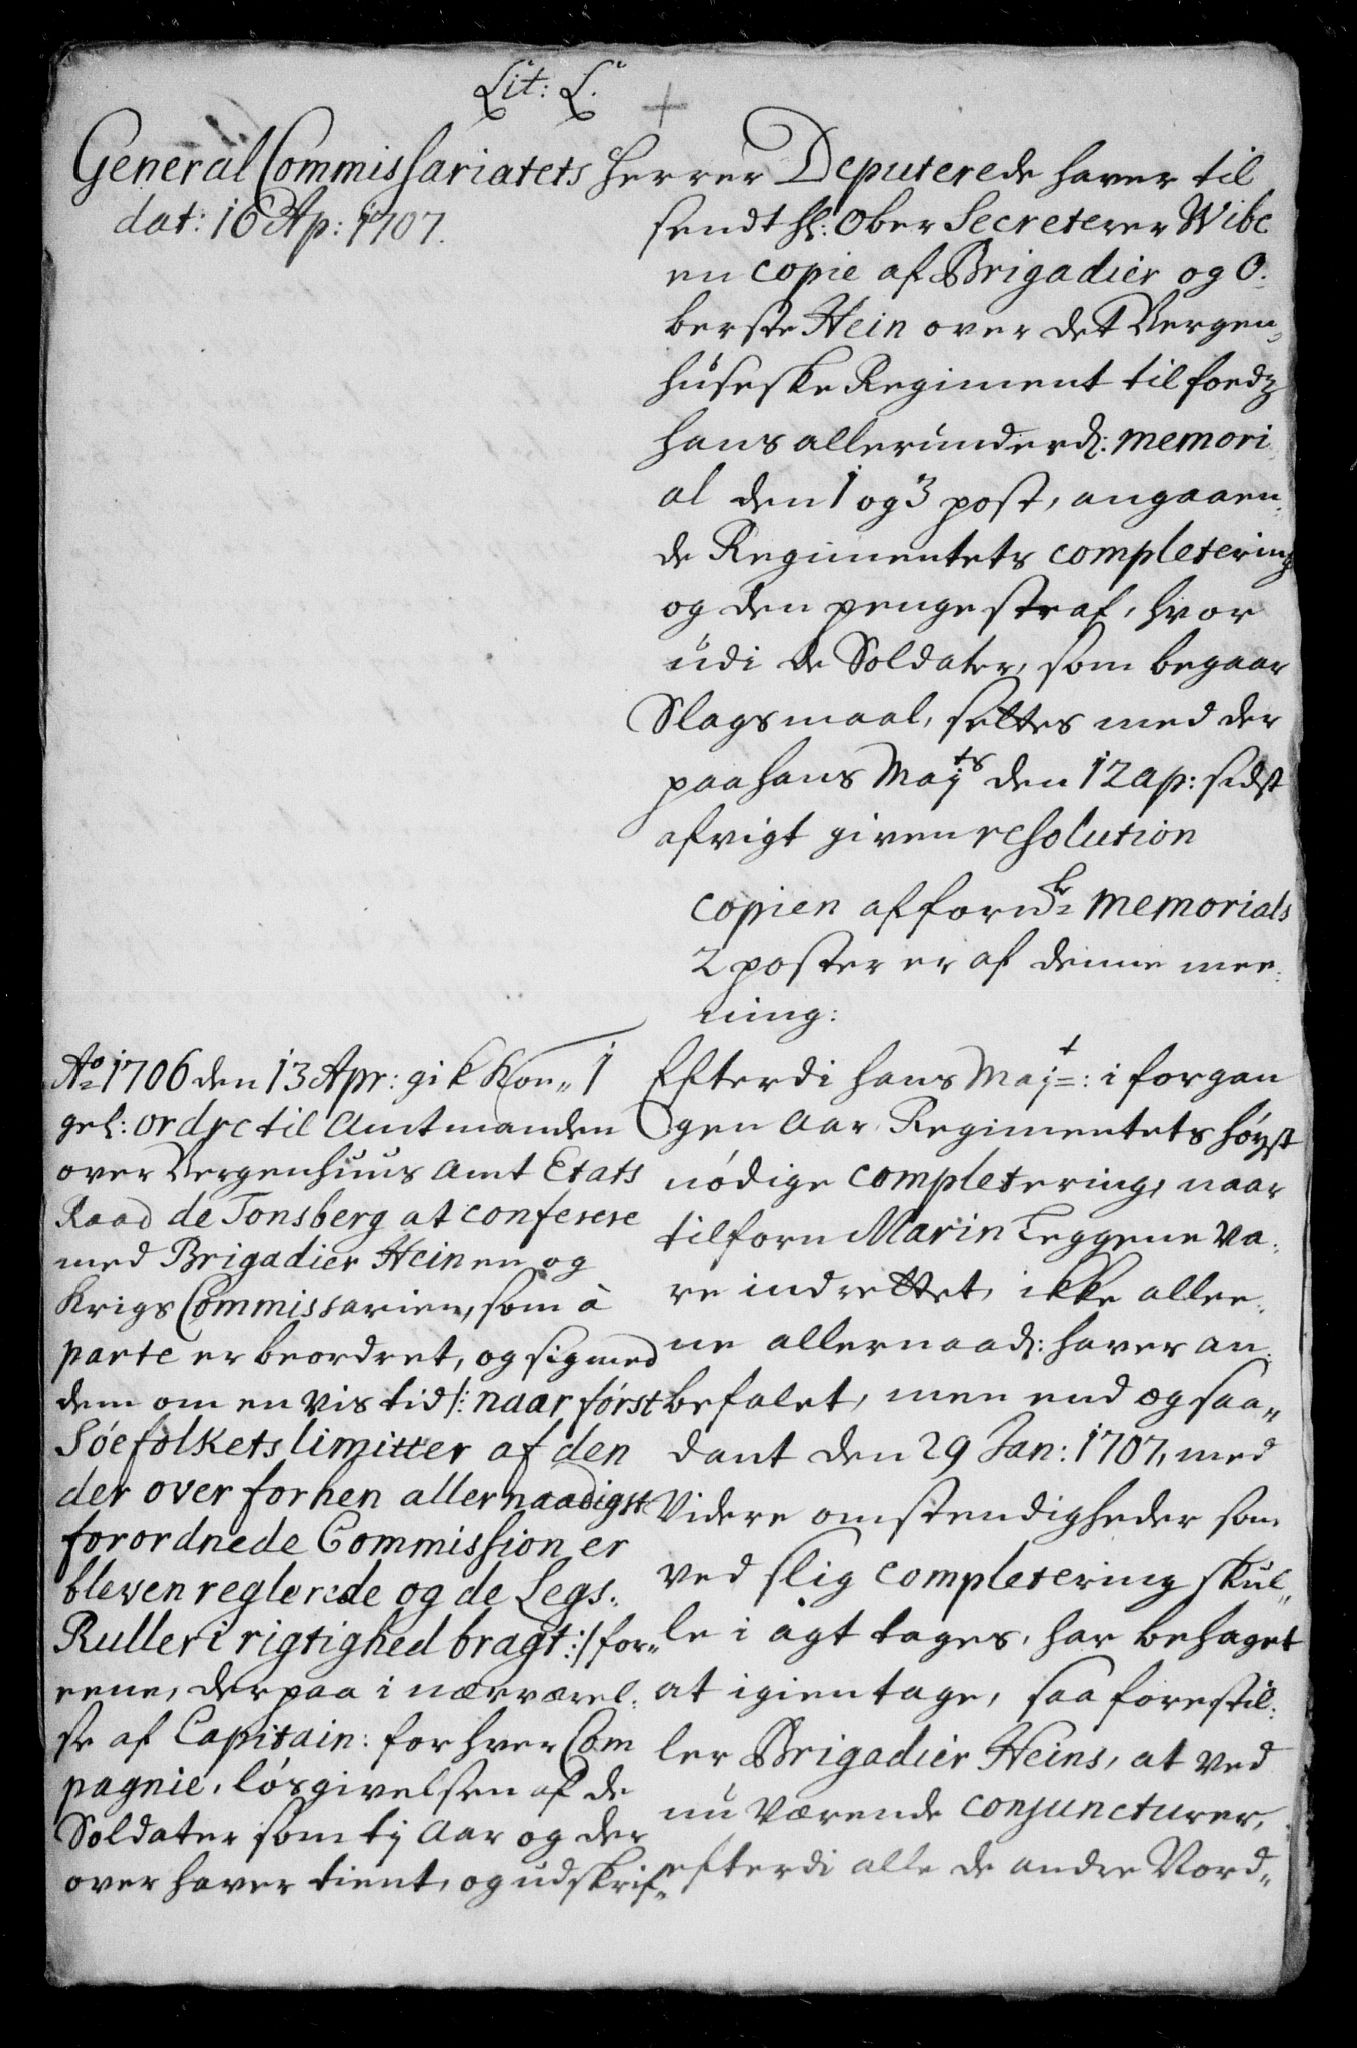 Lit: L.
General Commissariatets Herrer Deputerede haver til
dat: 16 Ap: 1707.
sendt Hl: Ober Secreterer Wibe
en copie af Brigadier og O-
berste Hein over det Bergen-
huseske Regiment tilføed
hans allerunderd: memori
al den 1 og 3 post, angaaen-
de Regimentets completering
og den penge straf, hvor
udi de Soldater, som begaar
Slagsmaal, settes med der
paa hans Majts den 12 ap: sidst
afvigt given resolution
copien af fornde memorials
2 poster er af denne mee-
ning:
Ao 1706 den 13 Apr: gik Kon-
gel: ordre til Amtmanden
over Bergenhuus Amt Etats
Raad de Tonsberg at conferere
med Brigadier Heinen og
Krigs Commissarien, som à
parte er beordret, og sig med
dem om en vis tid /: naar først
Søefolkets limitter af den
der over forhen allernaadigst
forordnede Commission er
bleven reglerede og de Legs-
Ruller i rigtighed bragt :/ for-
eene, der paa i nærværel-
se af Capitain: for hver Com
pagnie, løsgivelsen af de
Soldater som ti Aar og der
over haver tient, og udskrif-
1 Efterdi hans Majt: i forgan
gen Aar Regimentets høyst
nødige completering, naar
tilforn Marin Leggene va-
re indrettet, ikke allee-
ne allernaad: haver an-
befalet, men end og saa-
dant den 29 Jan: 1707, med
Videre omstendigheder som
ved slig completering skul-
le i agt tages, har behaget
at igientage, saa forestil-
ler Brigadier Heins, at ved
nu Værende conjuncturer,
efterdi alle de andre Nord-